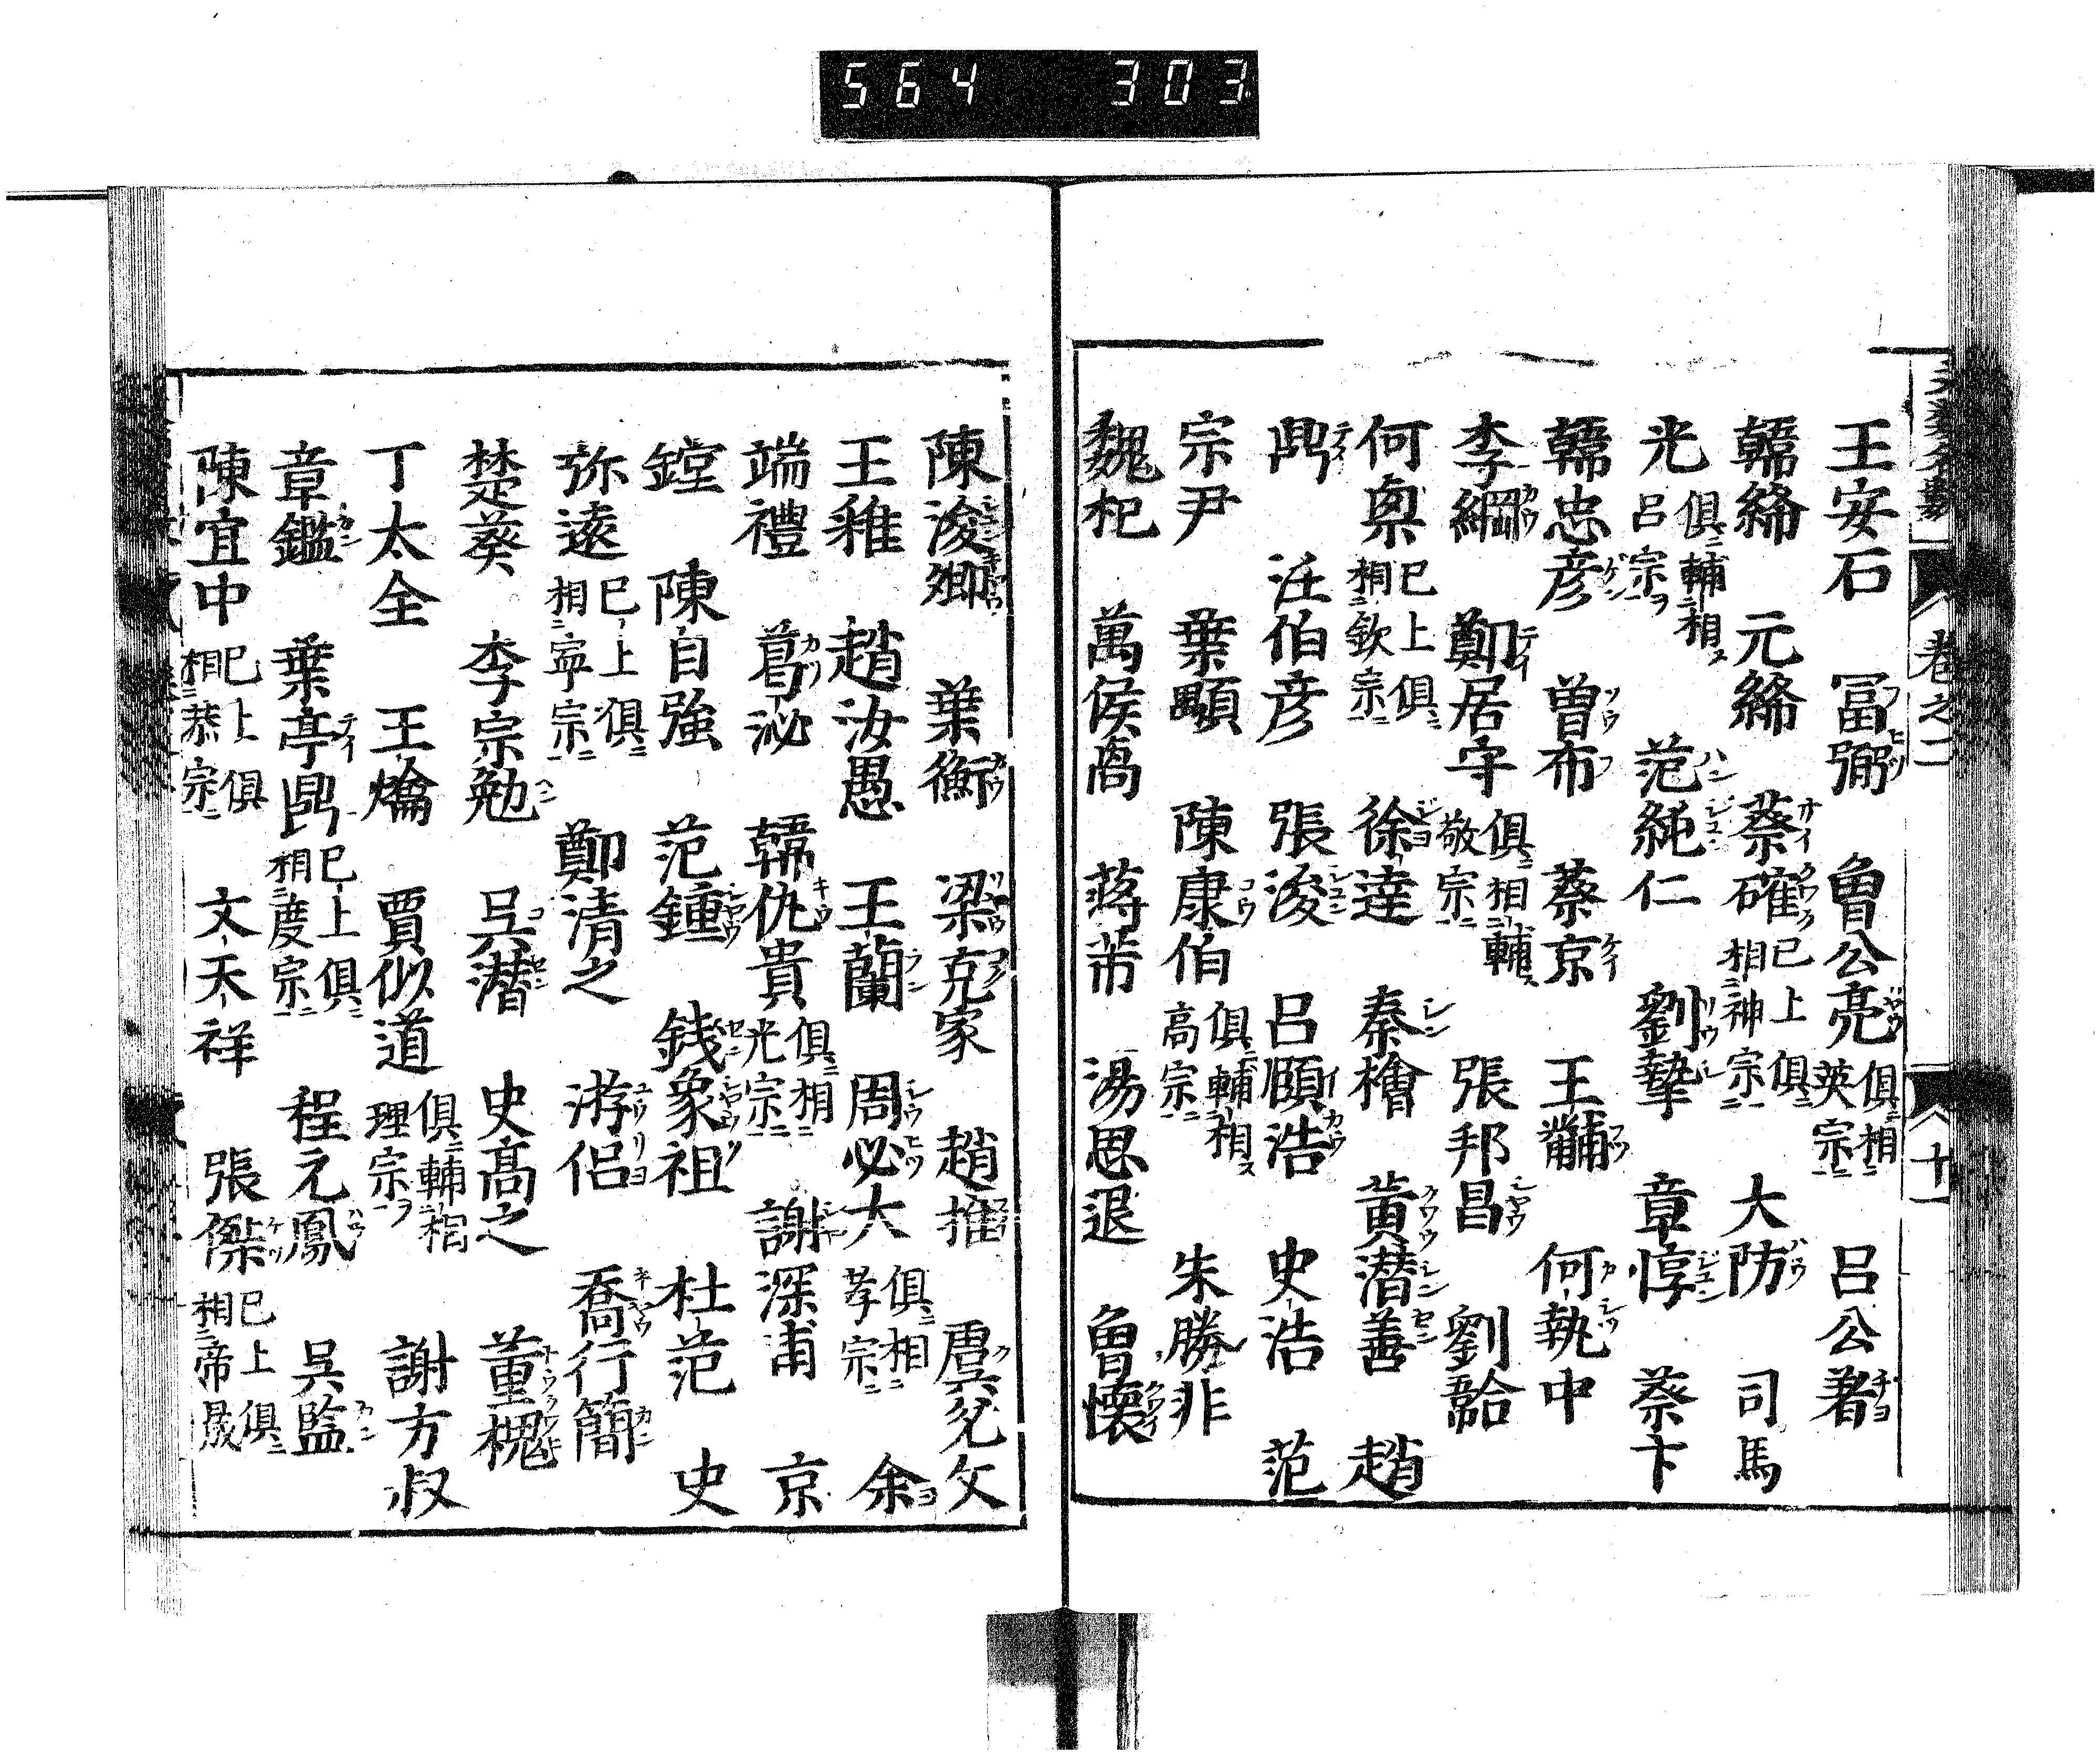 564 303
卷之一 十一
王安石 冨弼 曾公亮 俱相英宗 呂公著
韓絳 元絳 蔡確 已上俱相神宗 大防 司馬
光 俱輔相呂宗 范純仁 劉摯 章惇 蔡卞
韓忠彦 曽布 蔡京 王黼 何執中
李綱 鄭居守 俱相輔敬宗 張邦昌 劉
何㮚 已上俱相欽宗 徐達 秦檜 黄潜善 趙
鼎 汪伯彦 張浚 呂頤浩 史浩 范
宗尹 葉顒 陳康伯 俱輔相高宗 朱勝非
魏杞 萬侯卨 蔣芾 湯思退 曾懷
陳浚卿 葉衡 梁克家 趙 虞允文
王雅 趙汝愚 王蘭 周必大 俱相孝宗 余
端禮 葛泌 韓仇貴 俱相光宗 謝深甫 京
鏜 陳自強 范鍾 銭象祖 杜范 史
弥遠 已上俱相寧宗 鄭清之 游侣 喬行簡
楚葵 李宗勉 呉潜 史高之 董槐
丁太全 王爚 賈似道 俱輔相理宗 謝方叔
章鑑 葉亭鼎 已上俱相度宗 程元鳳 呉監
陳宜中 已上俱相恭宗 文天祥 張傑 已上俱相帝晟